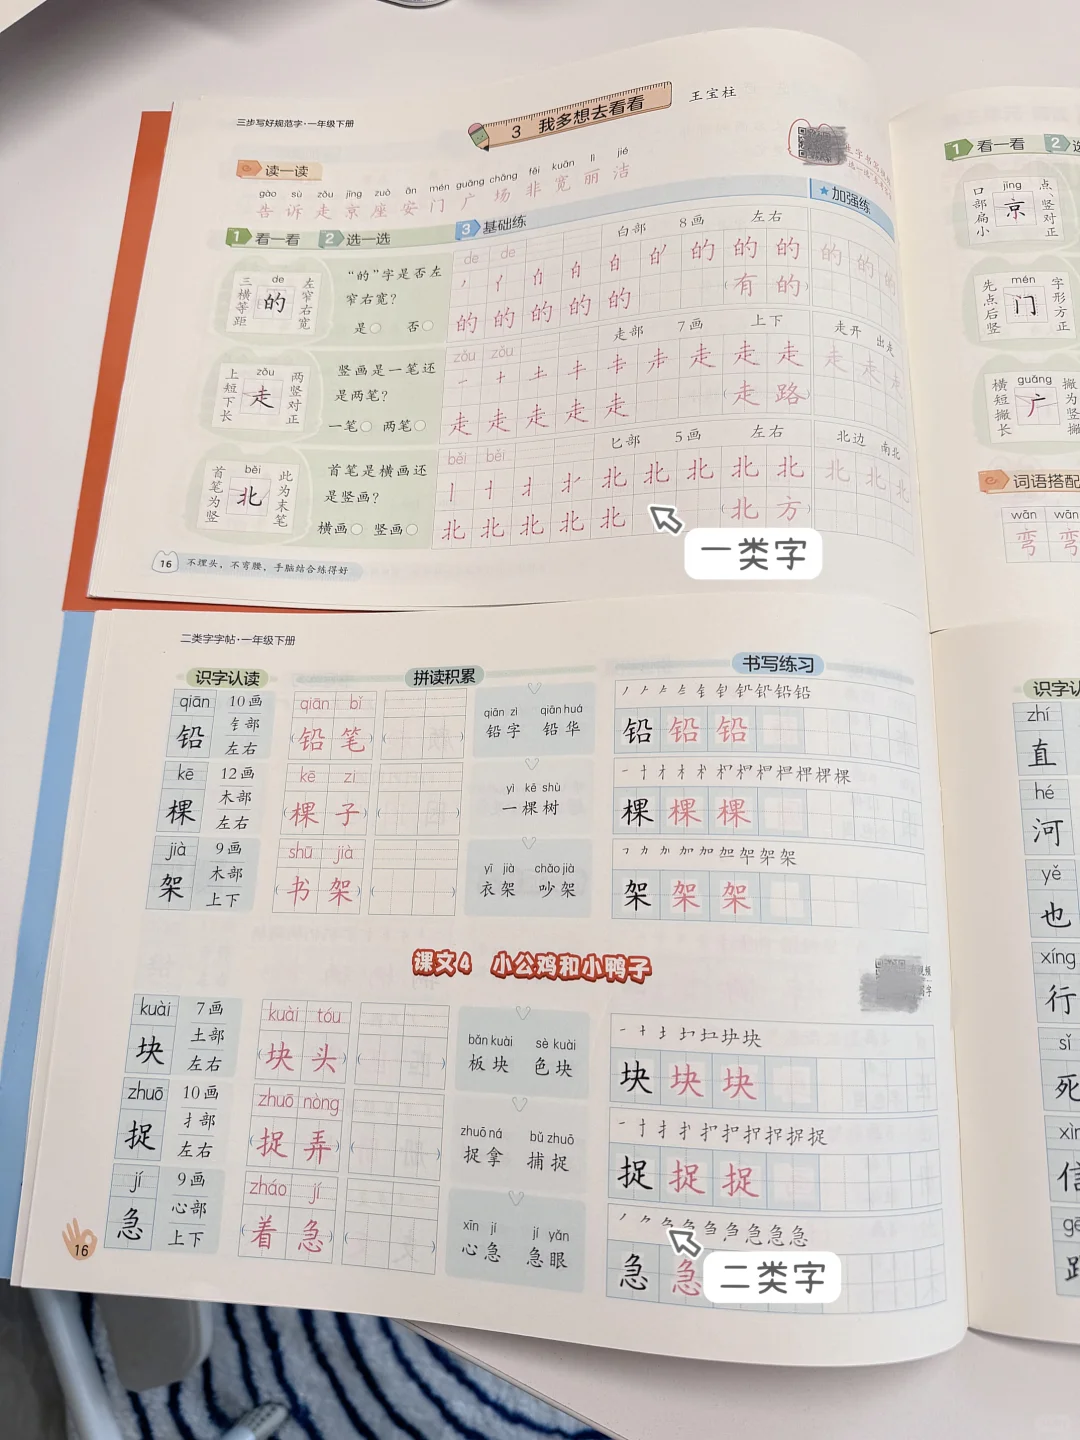 三步写好规范字·一年级下册
3 我多想去看看
王宝柱
读一读
gào sù zǒu jīng zuò ān mén guǎng chǎng fēi kuān lì jié
告 诉 走 京 座 安 门 广 场 非 宽 丽 洁
1 看一看 2 选一选 3 基础练
★加强练
三横等距
de
的
左窄右宽
“的”字是否左
窄右宽?
是 否
de de
白部 8画 左右
的 的 的 的
的 的 的
的 的 的 的 的
(有 的)
上短下长
zǒu
走
两竖对正
竖画是一笔还
是两笔?
一笔 两笔
zǒu zǒu
走部 7画 上下
走开 出走
走 走 走
走 走 走
走 走 走 走 走
(走 路)
首笔为竖
běi
北
此为末笔
首笔是横画还
是竖画?
横画 竖画
běi běi
匕部 5画 左右
北边 南北
北 北 北 北 北
北 北 北
北 北 北 北 北
(北 方)
一类字
16 不埋头,不弯腰,手脑结合练得好
1 看一看 2
口部扁小
jīng
京
点、竖对正
先点后竖
mén
门
字形方正
横短撇长
guǎng
广
词语搭配
wān wān
弯 弯
二类字字帖·一年级下册
识字认读 拼读积累 书写练习
qiān
铅
10画
钅部
左右
qiān bǐ
(铅 笔)
qiān zì qiān huá
铅字 铅华
铅 铅 铅
kē
棵
12画
木部
左右
kē zi
(棵 子)
yì kē shù
一棵树
棵 棵 棵
jià
架
9画
木部
上下
shū jià
(书 架)
yī jià chǎo jià
衣架 吵架
架 架 架
课文4 小公鸡和小鸭子
kuài
块
7画
土部
左右
kuài tóu
(块 头)
bǎn kuài sè kuài
板块 色块
块 块 块
zhuō
捉
10画
扌部
左右
zhuō nòng
(捉 弄)
zhuō ná bǔ zhuō
捉拿 捕捉
捉 捉 捉
jí
急
9画
心部
上下
zháo jí
(着 急)
xīn jí jí yǎn
心急 急眼
急 急
二类字
16
zhí
直
hé
河
yě
也
xíng
行
sǐ
死